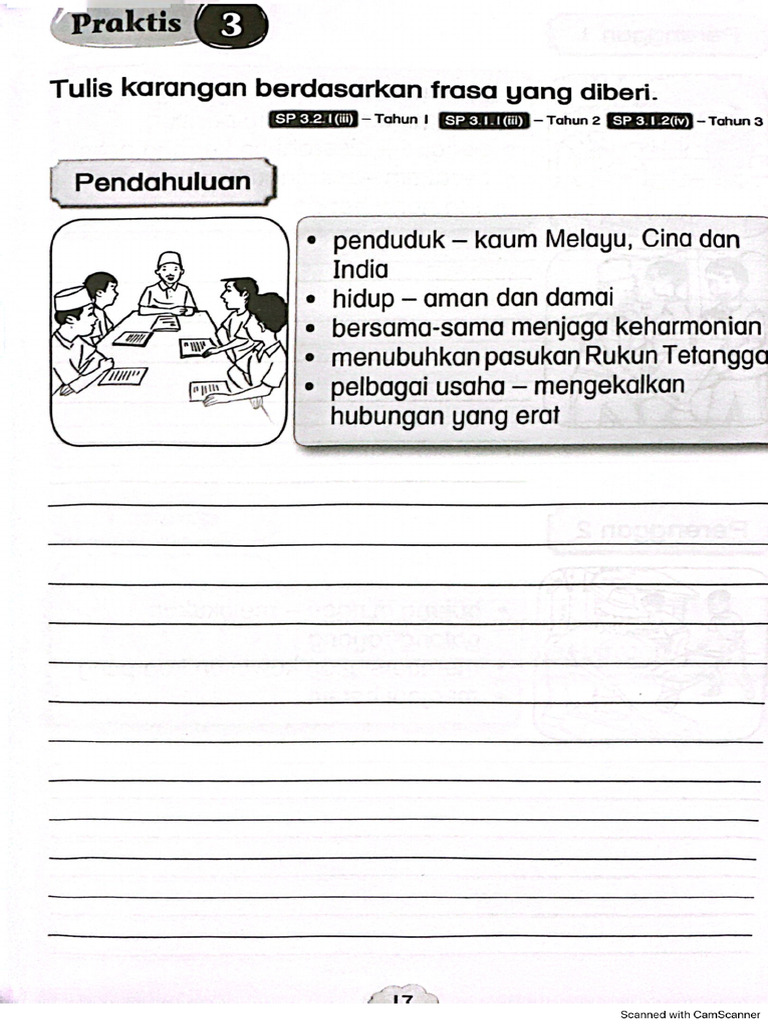 Praktis 3
Tulis karangan berdasarkan frasa yang diberi.
SP 3.2.1(iii) – Tahun 1 SP 3.1.1(iii) – Tahun 2 SP 3.1.2(iv) – Tahun 3
Pendahuluan
• penduduk – kaum Melayu, Cina dan
India
• hidup – aman dan damai
• bersama-sama menjaga keharmonian
• menubuhkan pasukan Rukun Tetangga
• pelbagai usaha – mengekalkan
hubungan yang erat
17
Scanned with CamScanner